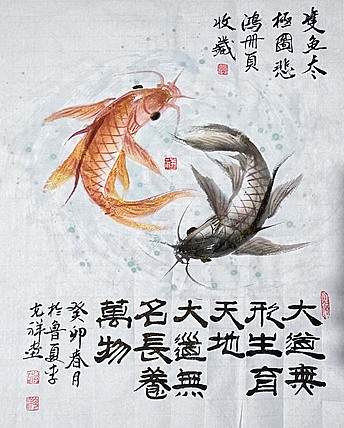 雙魚太
極圖悲
鴻冊頁
收藏
大道無
形生育
天地
大道無
名長養
萬物
癸卯春月
於魯夏李
祥